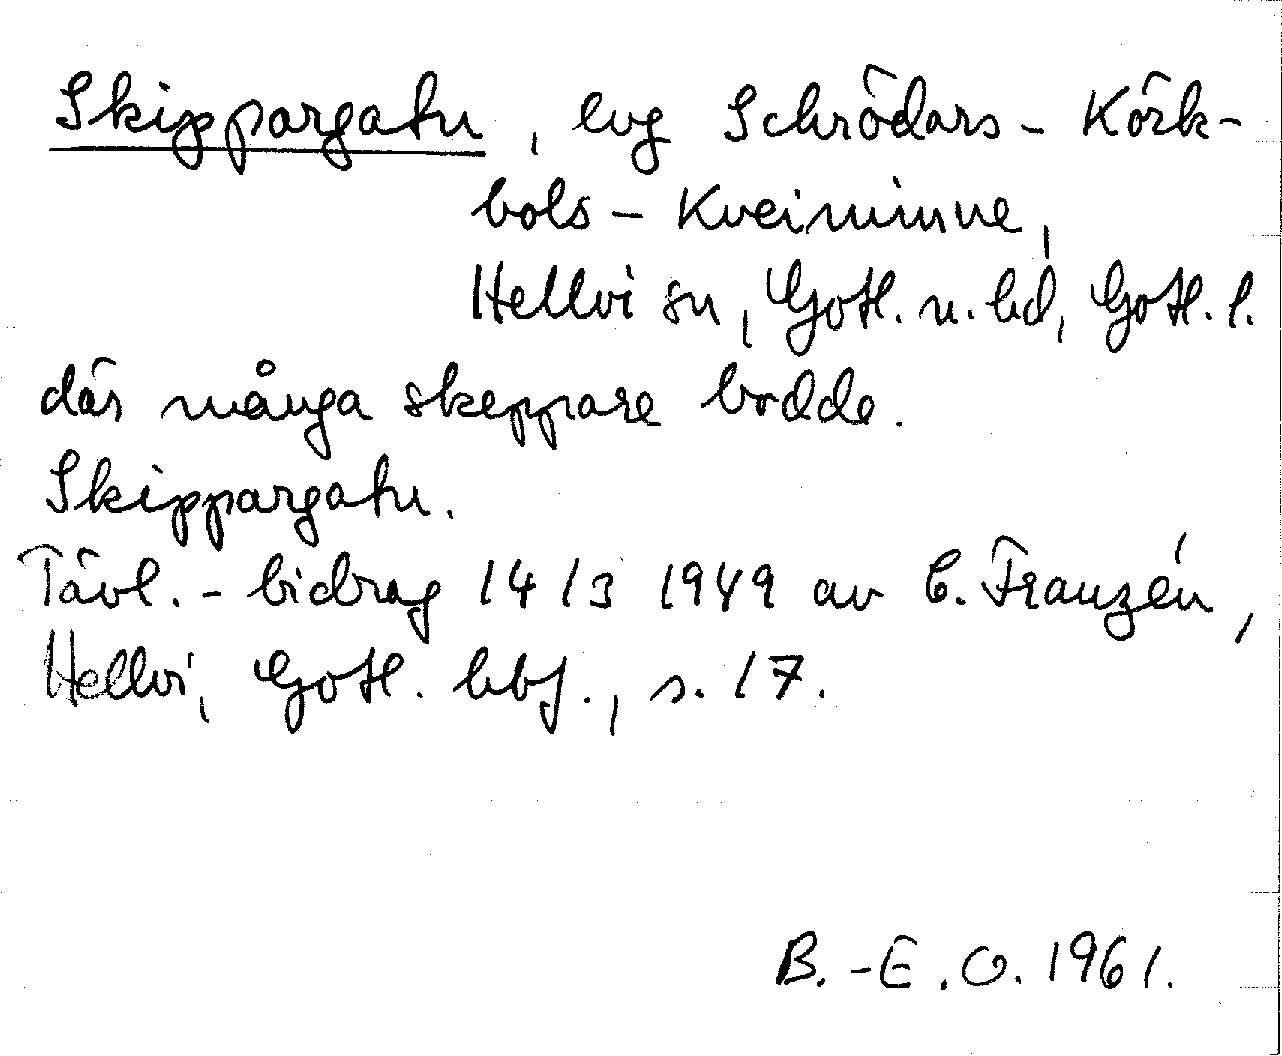 Skippargatu, lvg Schrödars - Körk-
bols - Kveiminne,
Hellvi sn, Gotl. n. hd, Gotl. l.
där många skeppare bodde.
Skippargatu.
Tävl. - bidrag 14/3 1949 av C. Franzén,
Hellvi, Gotl. hbf., s. 17.
B.-E.O. 1961.